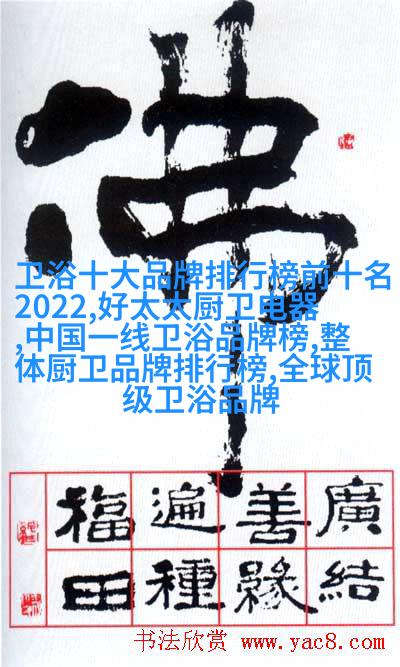 佛
卫浴十大品牌排行榜前十名
2022,好太太厨卫电器
,中国一线卫浴品牌榜,整
体厨卫品牌排行榜,全球顶
级卫浴品牌
廣結
善緣
遍種
福田
书法欣赏 www.yac8.com